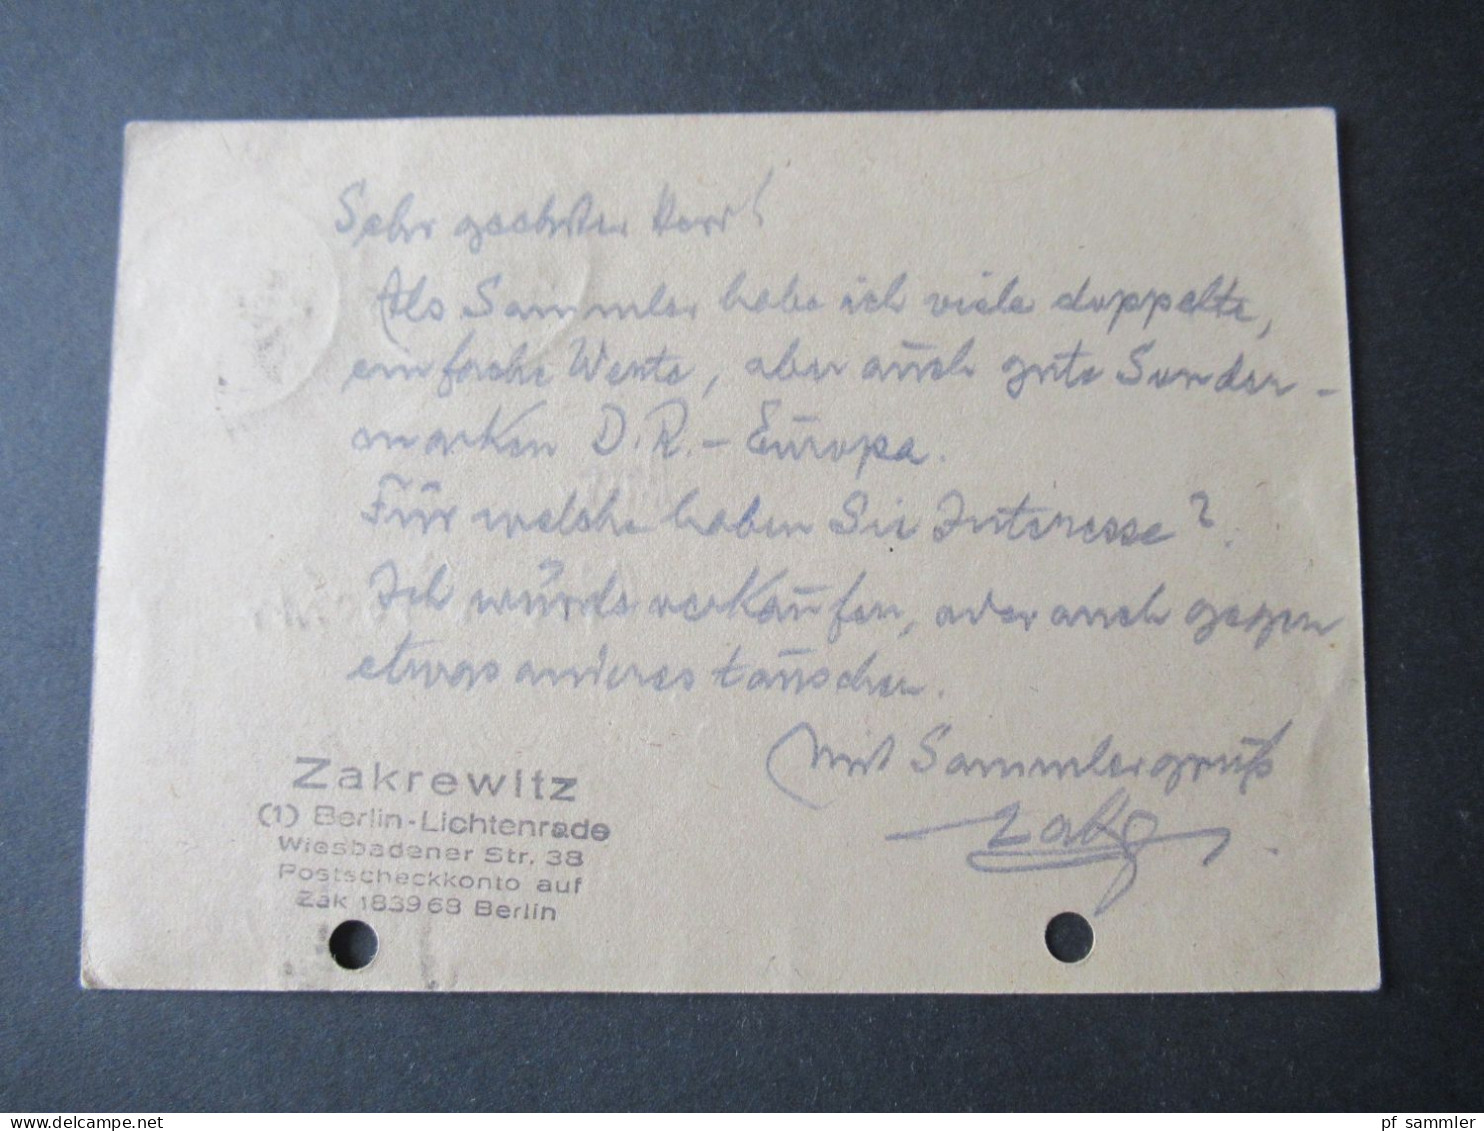 Sehr geehrter Herr!
Als Sammler habe ich viele doppelte,
einfache Werte, aber auch gute Sonder-
marken D.R. - Europa.
Für welche haben Sie Interesse?
Ich würde verkaufen, oder auch gegen
etwas anderes tauschen.
Mit Sammlergruß
Zakrewitz
(1) Berlin-Lichtenrade
Wiesbadener Str. 38
Postscheckkonto auf
Zak 183968 Berlin
pf_sammler_delcampe.net